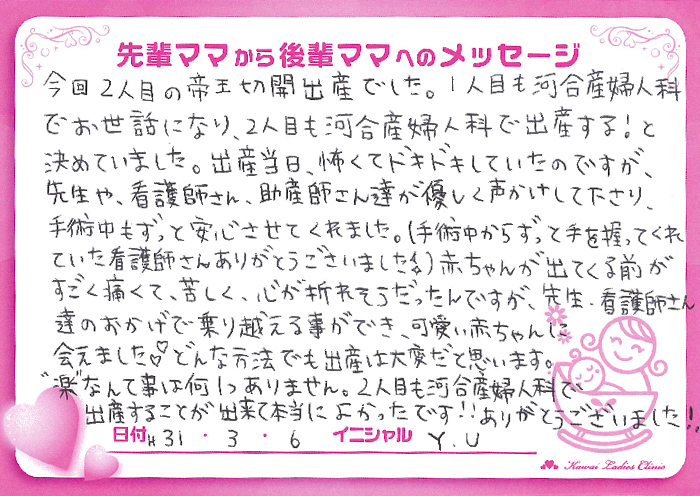 先輩ママから後輩ママへのメッセージ
今回2人目の帝王切開出産でした。1人目も河合産婦人科
でお世話になり、2人目も河合産婦人科で出産する!と
決めていました。出産当日、怖くてドキドキしていたのですが、
先生や、看護師さん、助産師さん達が優しく声かけして下さり、
手術中もずっと安心させてくれました。(手術中からずっと手を握ってくれ
ていた看護師さんありがとうございました)赤ちゃんが出てくる前が
すごく痛くて、苦しく、心が折れそうだったんですが、先生・看護師さん
達のおかげで乗り越える事ができ、可愛い赤ちゃんに
会えました♡どんな方法でも出産は大変だと思います。
"楽"なんて事は何1つありません。2人目も河合産婦人科で
出産することが出来て本当によかったです!!ありがとうございました!!
日付 H31・3・6 イニシャル Y.U
Kawai Ladies Clinic